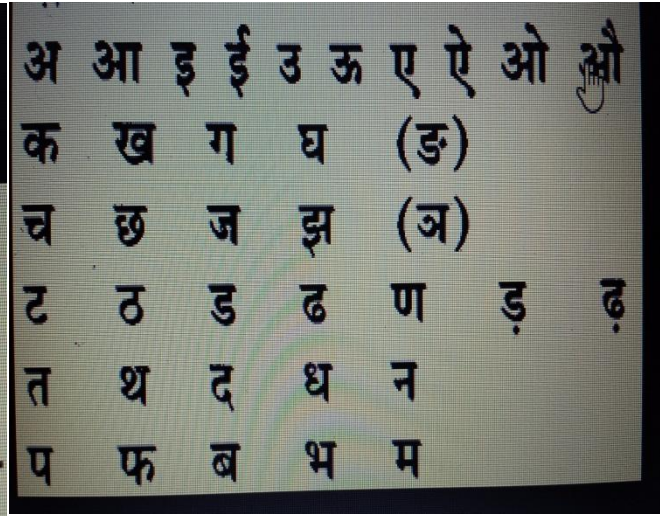 अ आ इ ई उ ऊ ए ऐ ओ औ
क ख ग घ (ङ)
च छ ज झ (ञ)
ट ठ ड ढ ण ड़ ढ़
त थ द ध न
प फ ब भ म